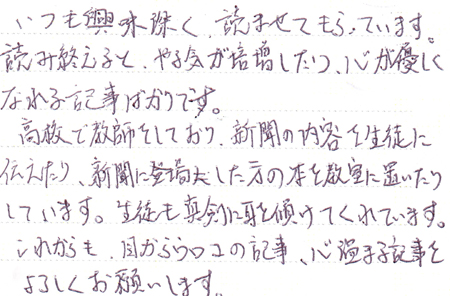 いつも興味深く、読ませてもらっています。
読み終えると、やる気が倍増したり、心が優しく
なれる記事ばかりです。
高校で教師をしており、新聞の内容を生徒に
伝えたり、新聞に登場した方の本を教室に置いたり
しています。生徒も真剣に耳を傾けてくれています。
これからも、目からウロコの記事、心温まる記事を
よろしくお願いします。